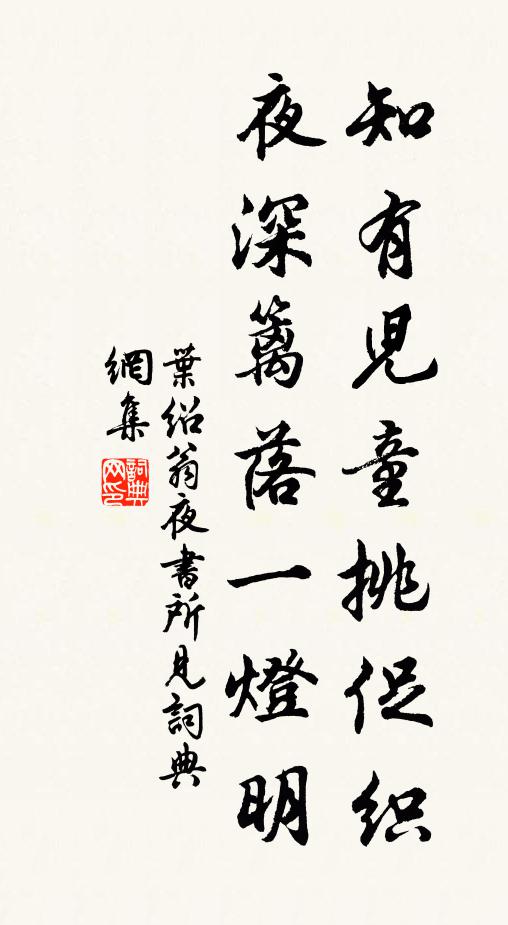 知有児童挑促织
夜深篱落一燈明
葉绍翁夜書所見詞典
網集
詞典網印